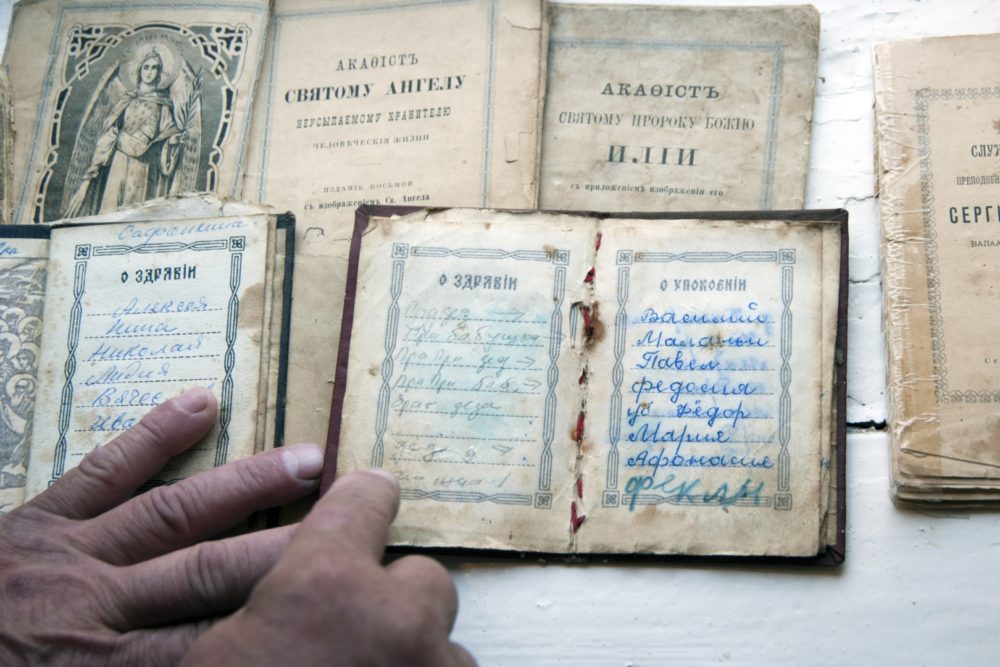 АКАѲІСТЪ
СВЯТОМУ АНГЕЛУ
НЕУСЫПАЕМОМУ ХРАНИТЕЛЮ
ЧЕЛОВѢЧЕСКІЯ ЖИЗНИ
ИЗДАНІЕ ВОСЬМОЕ
съ изображеніемъ Св. Ангела
АКАѲІСТЪ
СВЯТОМУ ПРОРОКУ БОЖІЮ
ИЛІИ
съ приложеніемъ изображенія его
СЛУЖ
ПРЕПОДОБН
СЕРГІ
ВАЛАА
О ЗДРАВІИ
Алексея
Нина
Николая
Лидия
О ЗДРАВІИ
Прабабушка →
Пра При дед →
Пра При баб →
дед
О УПОКОЕНІИ
Василий
Маланьи
Павел
федосия
Фёдор
Мария
Афонасия
феклы